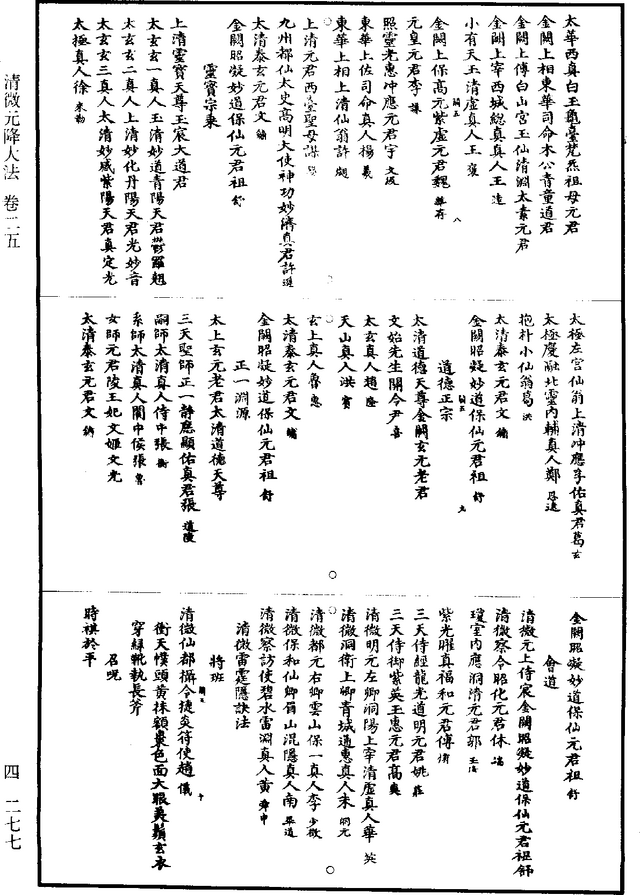 太華西真白王龜臺梵炁祖母元君
金闕上相東華司命木公青童道君
金闕上傅白山宮玉仙清澗太素元君
金闕上宰西城總真真人王遠
小有天王清虛真人王襃
金闕上保高元紫虛元君魏華存
元皇元君李
照靈光惠冲應元君宇文
東華上佐司命真人楊羲
東華上相上清仙翁許翽
上清元君西臺聖母諶
九州都仙太史高明大使神功妙濟真君許遜
太清泰玄元君文
金闕昭凝妙道保仙元君祖舒
靈寶宗東
上清靈寶天尊玉宸大道君
太玄玄一真人玉清妙道青陽天君鬱羅翹
太玄玄二真人上清妙化丹陽天君光妙音
太玄玄三真人太清妙威紫陽天君真定光
太極真人徐來勒
太極左宮仙翁上清冲應孚佑真君葛玄
太極慶融北靈內輔真人鄭思遠
抱朴小仙翁葛洪
太清泰玄元君文
金闕昭凝妙道保仙元君祖舒
道德正宗
太清道德天尊金闕玄元老君
文始先生關令尹喜
太玄真人趙
天山真人洪
玄上真人魯
太清泰玄元君文
金闕昭凝妙道保仙元君祖舒
正一淵源
太上玄元老君太清道德天尊
三天聖師正一靜應顯佑真君張道陵
嗣師太清真人侍中張衡
系師太清真人閬中侯張魯
女師元君陵王妃文姬文光
太清泰玄元君文
金闕昭凝妙道保仙元君祖舒
會道
清微元上侍宸金闕昭凝妙道保仙元君祖舒
清微察令昭化元君休端
瓊室內應洞清元君郭
紫光曜真福和元君傅
三天侍經龍光道明元君姚莊
三天侍御紫英玉惠元君高奭
清微明元左卿洞陽上宰清虛真人華英
清微洞衛上卿青城通惠真人朱洞元
清微都元右卿雲山保一真人李少微
清微保和仙卿眉山混隱真人南畢道
清微察訪使碧水雷淵真人黃舜申
清微雷霆隱訣法
將班
清微仙都攝令捷炎符使趙儀
衝天幞頭黃抹額棗色面大眼黃鬚玄衣
穿綠靴執長斧
召呪
時祺於平
清微元降大法　卷二五
四　二七七